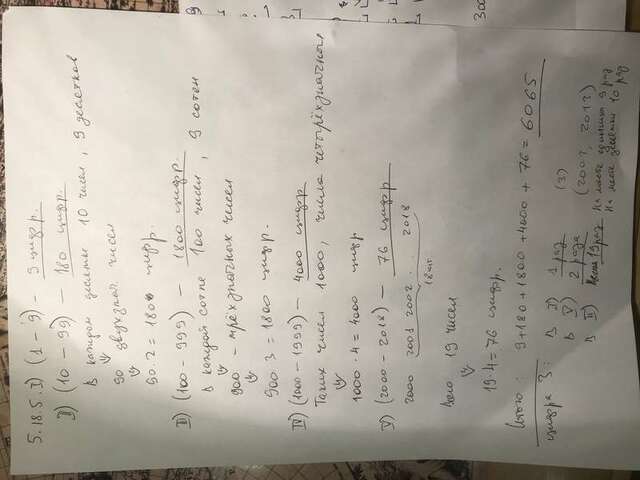 5.18.5. I) (1 – 9) – 9 цифр.
II) (10 – 99) – 180 цифр.
В каждом десятке 10 чисел, 9 десятков
90 двухзнач. чисел
90·2 = 180 цифр.
III) (100 – 999) – 1800 цифр.
В каждой сотне 100 чисел, 9 сотен
900 – трёхзначных чисел
900·3 = 1800 цифр.
IV) (1000 – 1999) – 4000 цифр
Таких чисел 1000, числа четырёхзначные
1000·4 = 4000 цифр
V) (2000 – 2018) – 76 цифр
2000 2001 2002 ... 2018
18 шт
Всего 19 чисел
19·4 = 76 цифр.
Итого: 9+180+1800+4000+76 = 6065
цифра 3: В I) 1 раз (3)
В V) 2 раза (2003, 2013)
В II) 19 раз На месте единиц 9 раз
На месте десятков 10 раз